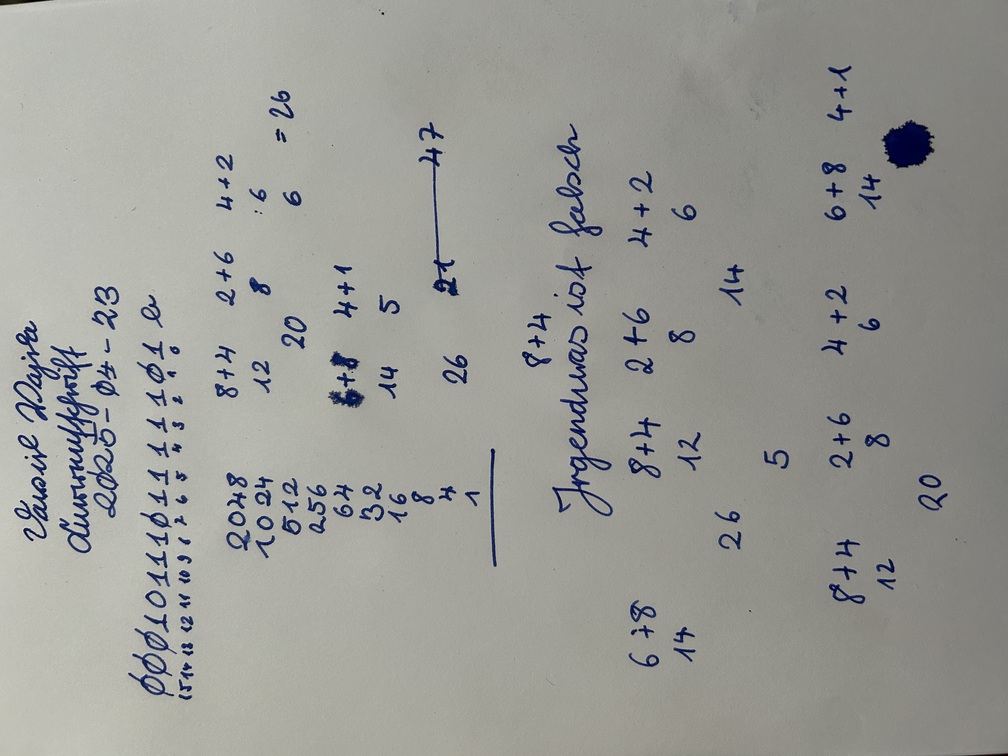 2025-04-23
0001011101111101
15 14 13 12 11 10 9 8 7 6 5 4 3 2 1 0
2048 8+4 2+6 4+2
1024 12 8 :6
512 20 6 = 26
256
64 6+8 4+1
32
16 14 5
8
4 26 21 47
1
8+4
Irgendwas ist falsch
6+8 8+4 2+6 4+2
14 12 8 6
26 14
5
8+4 2+6 4+2 6+8 4+1
12 8 6 14
20